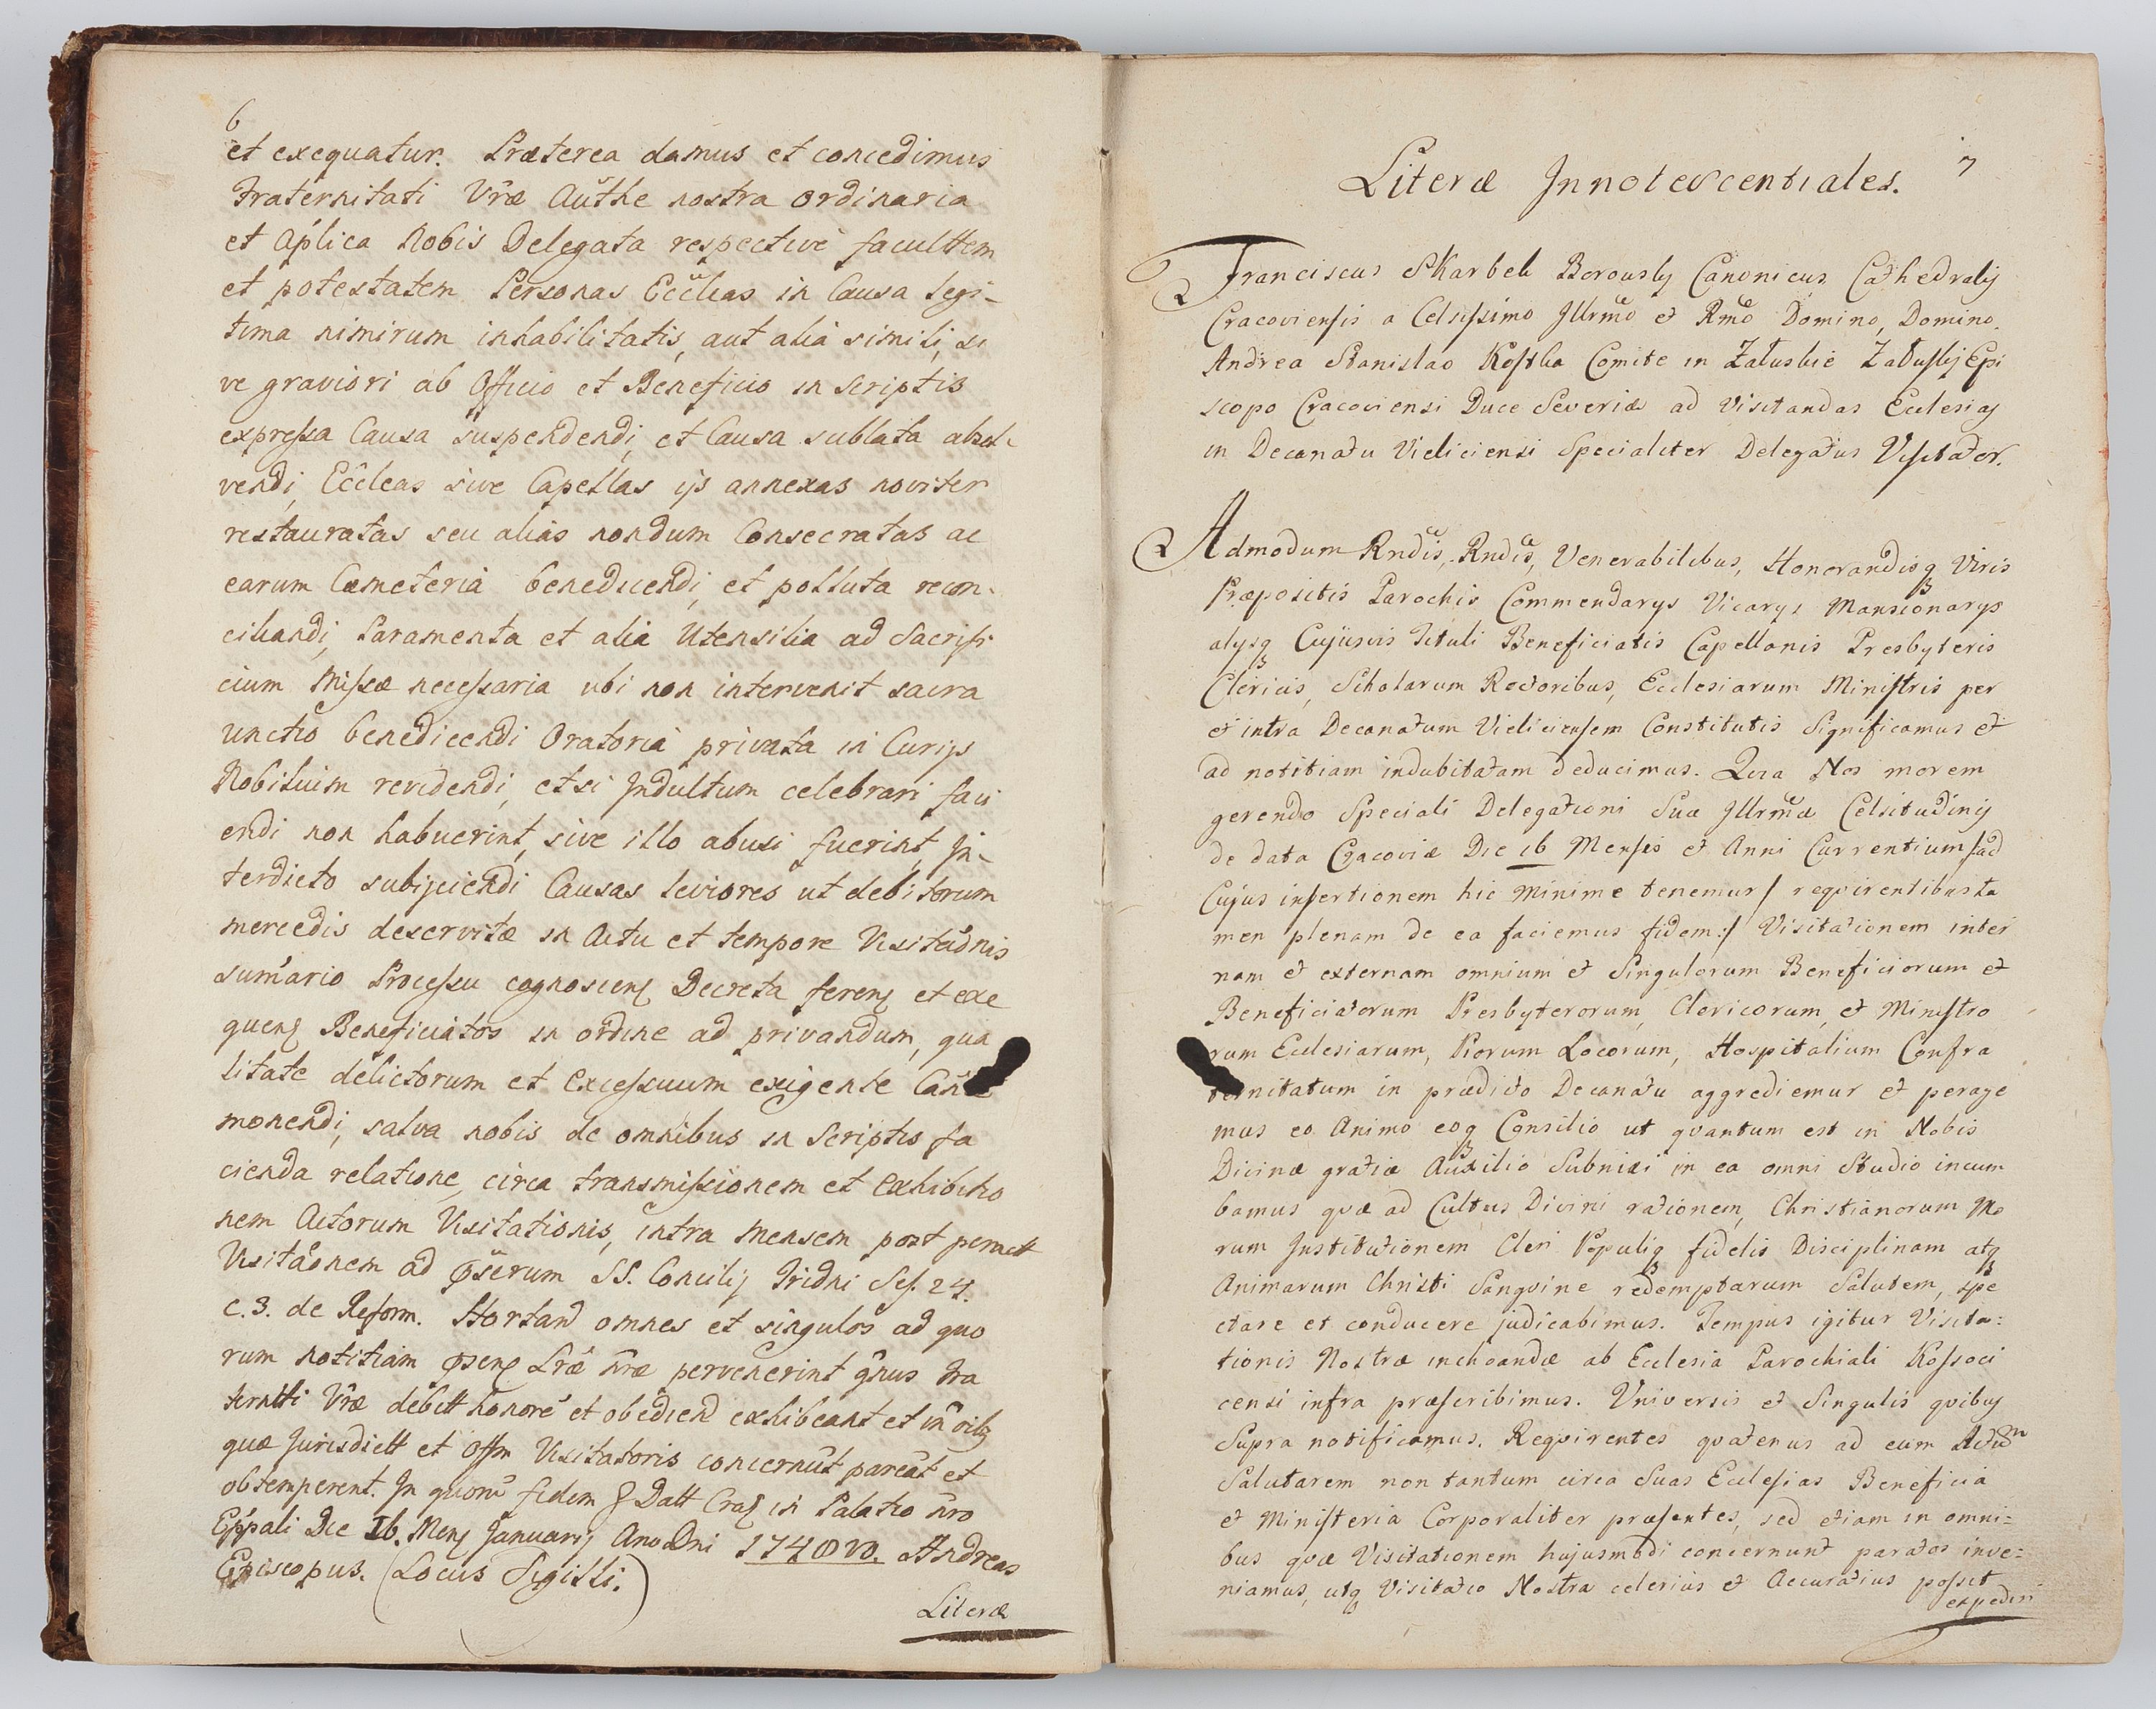 6
et exequatur. Præterea damus et concedimus
Fraternitati Vræ Authe nostra ordinaria
et Aplica Nobis Delegata respective facultem
et potestatem Personas Eccleas in Causa legi-
tima nimirum inhabilitatis, aut alia simili, si
ve graviori ab Officio et Beneficio in Scriptis
expressa Causa suspendendi, et Causa sublata absol-
vendi, Eccleas sive Capellas ijs annexas noviter
restauratas seu alias nondum Consecratas ac
earum Cæmeteria benedicendi, et polluta recon-
ciliandi, Paramenta et alia Utensilia ad Sacrifi
cium Missæ necessaria ubi non intervenit sacra
unctio benedicendi Oratoria privata in Curijs
Nobilium revidendi, et si Indultum celebrari faci
endi non habuerint, sive illo abusi fuerint, In-
terdicto subijciendi Causas leviores ut debitorum
mercedis deservitæ in Actu et tempore Visitaönis
sumario Processu cognoscen Decreta feren et exe
quen Beneficiatos in ordine ad privandum, qua
litate delictorum et Excessuum exigente
monendi, salva nobis de omnibus in Scriptis fa
cienda relatione, circa transmissionem et Exhibitio
nem Actorum Visitationis, intra Mensem post peractt
Visitaönem ad SS. Concilij Tridni Ses. 24.
C. 3. de Reform. Hortand omnes et singulos ad quo
rum notitiam Lræ nræ pervenerint qnus Fra
ternitti Vræ debitt honore et obediend exhibeant et in oibq
quæ Jurisdictt et Offm Visitatoris concernut pareat et
obtemperent. In quorū fidem Datt Crac in Palatio nro
Eppali Die 16. Mens Januarij Ano Dni 1748vo. Andreas
Episcopus. (Locus Sigilli.)
Literæ
7
Literæ Innotescentiales.
Franciscus Skarbek Borowsky Canonicus Cathedralis
Cracoviensis a Celsissimo Illrmo et Rmo Domino, Domino
Andrea Stanislao Kostka Comite in Załuskie Załuskj Epi
scopo Cracoviensi Duce Severiæ ad visitandas Ecclesias
in Decanatu Vieliciensi Specialiter Delegatus Visitator.
Admodum Rndis, Rndis, Venerabilibus, Honorandisq Viris
Præpositis Parochis Commendarys Vicarys Mansionarys
alysq Cujusvis Tituli Beneficiatis Capellanis Presbyteris
Clericis, Scholarum Rectoribus, Ecclesiarum Ministris per
et intra Decanatum Vieliciensem Constitutis Significamus et
ad notitiam indubitatam deducimus. Quia Nos morem
gerendo Speciali Delegationi Suæ Illrmæ Celsitudinis
de data Cracoviæ Die 16 Mensis et Anni Currentium /ad
Cujus insertionem hic minime tenemur/ requirentibus ta
men plenam de ea faciemus fidem:/ Visitationem inter
nam et externam omnium et Singulorum Beneficiorum et
Beneficiatorum Presbyterorum, Clericorum, et Ministro
rum Ecclesiarum, Piorum Locorum, Hospitalium Confra
ternitatum in prædicto Decanatu aggrediemur et perage
mus eo Animo eoq Consilio ut quantum est in Nobis
Divinæ gratiæ Auxilio Subnixi in ea omni Studio incum
bamus quæ ad Cultus Divini rationem, Christianorum Mo
rum Institutionem Cleri Populiq fidelis Disciplinam atq
Animarum Christi Sanguine redemptarum Salutem, spe
ctare et conducere judicabimus. Tempus igitur Visita:
tionis Nostræ inchoandæ ab Ecclesia Parochiali Kossoci
censi infra præscribimus. Universis et Singulis quibus
Supra notificamus. Requirentes quatenus ad eum Actum
Salutarem non tantum circa Suas Ecclesias Beneficia
et Ministeria Corporaliter præsentes, sed etiam in omni=
bus quæ Visitationem hujusmodi concernunt paratos inve=
niamus, utq Visitatio Nostra celerius et Accuratius possit
expediri